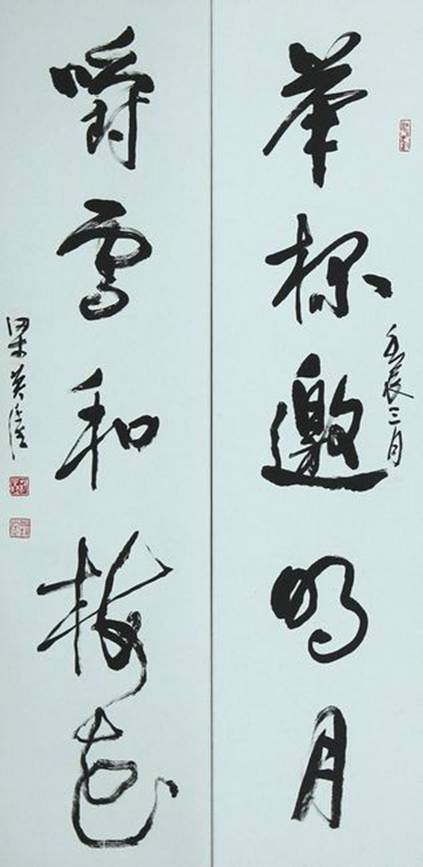 举杯邀明月
壬辰三月
嚼雪和梅花